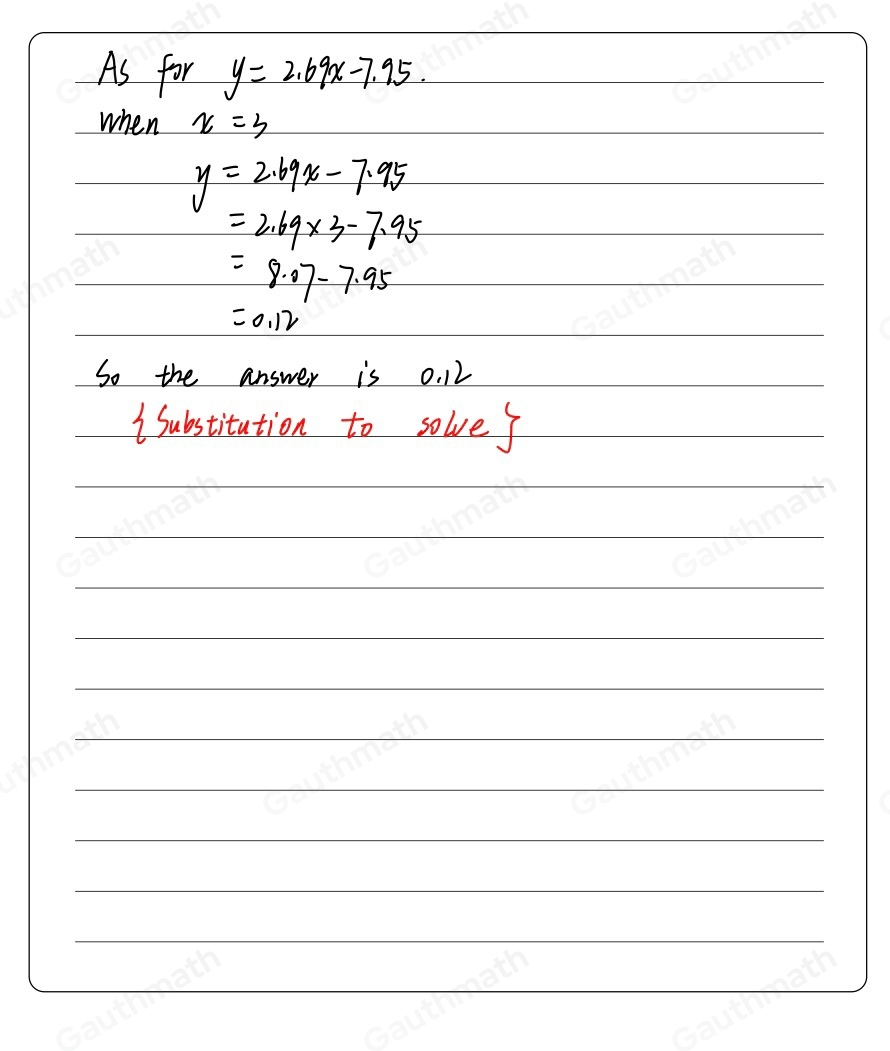 As for y = 2.69x - 7.95.
when x = 3
y = 2.69x - 7.95
= 2.69 × 3 - 7.95
= 8.07 - 7.95
= 0.12
So the answer is 0.12
{Substitution to solve}
Gauthmath